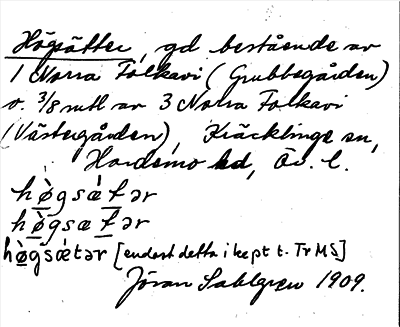 Högsätter, gd bestående av
1 Norra Folkavi (Grubbegården)
o. 3/8 mtl av 3 Norra Folkavi
(Västergården), Kräcklinge sn,
Hardemo hd, Ör. l.
hø̀gsæ̀tər
hø̀gsætər
hø̀gsæ̀tər [endast detta i kept t. Tr MS]
Jöran Sahlgren 1909.